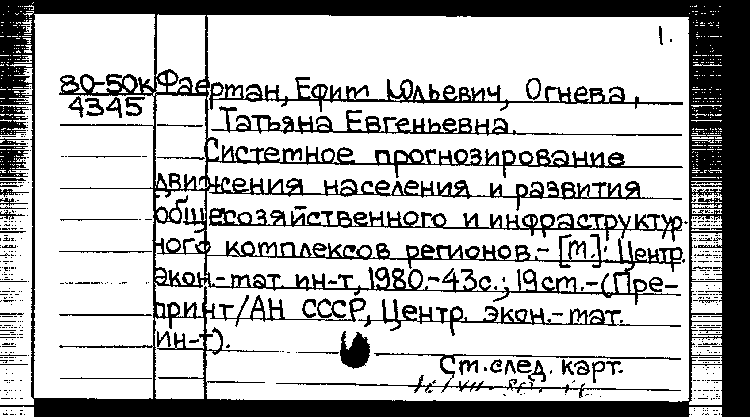 1.
80-50к Фаерман, Ефим Юльевич, Огнева,
4345 Татьяна Евгеньевна.
Системное прогнозирование
движения населения и развития
общехозяйственного и инфраструктур-
ного комплексов регионов.- [М.]: Центр.
экон.-мат. ин-т, 1980.-43с.; 19см.-(Пре-
принт/АН СССР, Центр. экон.-мат.
ин-т).
См.след. карт.